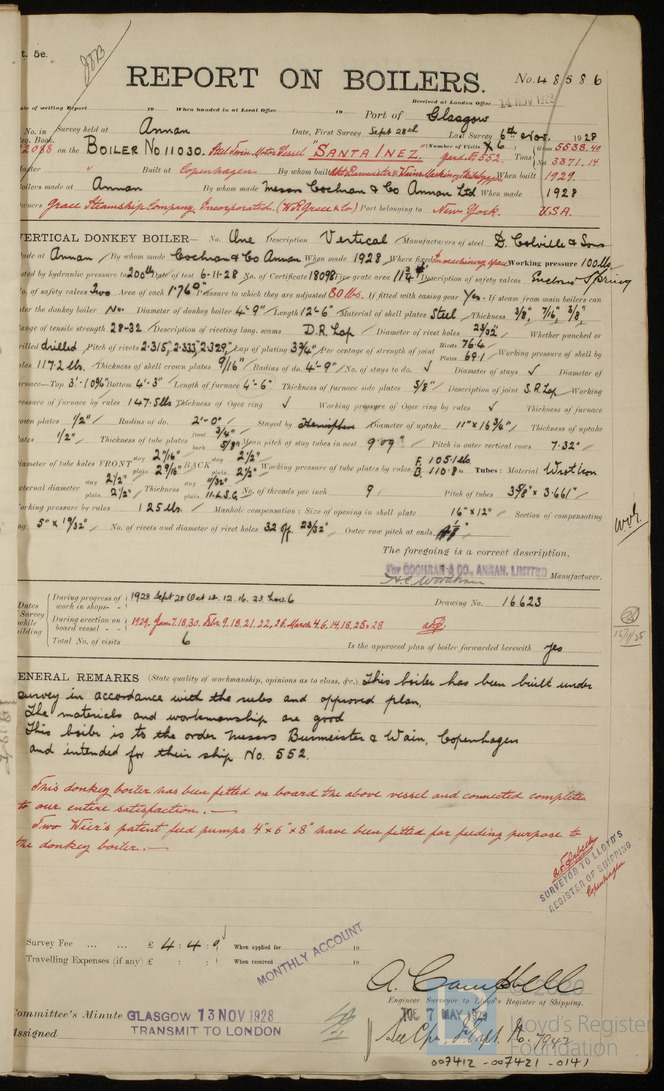 t. 5e.
REPORT ON BOILERS.
No. 48586
Received at London Office 14 NOV 1928
ate of writing Report 19 When handed in at Local Office 19 Port of Glasgow
No. in Survey held at Annan Date, First Survey Sept 28th Last Survey 6th Nov. 1928
eg. Book. (Number of Visits 6)
2088 on the BOILER No 11030. Steel Twin Motor Vessel "SANTA INEZ." Yard No 552. Tons Gross 5538.40 Net 3371.14
Master " Built at Copenhagen By whom built When built 1929.
oilers made at Annan By whom made Messrs Cochran & Co Annan Ltd When made 1928
wners Grace Steamship Company, Incorporated. (W.R. Grace & Co) Port belonging to New York. U.S.A.
VERTICAL DONKEY BOILER— No. One Description Vertical Manufacturers of steel D. Colville & Sons
ade at Annan By whom made Cochran & Co Annan When made 1928 Where fixed In machinery space Working pressure 100 lbs
sted by hydraulic pressure to 200 lbs Date of test 6-11-28 No. of Certificate 18098 Fire grate area 11¾ Description of safety valves Enclosed Spring
o. of safety valves Two Area of each 1.769" Pressure to which they are adjusted 80 lbs. If fitted with easing gear Yes. If steam from main boilers can
ter the donkey boiler No. Diameter of donkey boiler 4'-9" Length 12'-6" Material of shell plates Steel Thickness 3/8", 7/16", 3/8",
ange of tensile strength 28-32 Description of riveting long. seams D.R. Lap Diameter of rivet holes 23/32" Whether punched or
rilled drilled Pitch of rivets 2.315", 2.333", 2.329" Lap of plating 3¾" Per centage of strength of joint Rivets 76.4 Plates 69.1 Working pressure of shell by
ules 117.2 lbs. Thickness of shell crown plates 9/16" Radius of do. 4'-9" No. of stays to do. ✓ Diameter of stays ✓ Diameter of
urnace—Top 3'-10⅞" Bottom 4'-3" Length of furnace 4'-6" Thickness of furnace side plates 5/8" Description of joint S.R. Lap Working
essure of furnace by rules 147.5 lbs Thickness of Ogee ring ✓ Working pressure of Ogee ring by rules ✓ Thickness of furnace
own plates 1/2" Radius of do. 2'-0" Stayed by Hemisphere Diameter of uptake 11" x 16¾" Thickness of uptake
lates 1/2" Thickness of tube plates front 3/4" back 5/8" Mean pitch of stay tubes in nest 9.09" Pitch in outer vertical rows 7.32"
iameter of tube holes FRONT stay 2 9/16" plain 2 9/16" BACK stay 2½" plain 2½" Working pressure of tube plates by rules F. 105.1 lbs. B. 110.8 " Tubes: Material Wrot Iron
xternal diameter stay 2½" plain 2½" Thickness stay 11/32" plain 11.L.S.G. No. of threads per inch 9 Pitch of tubes 3⅝" x 3.661"
orking pressure by rules 125 lbs. Manhole compensation: Size of opening in shell plate 16" x 12" Section of compensating
ng 5" x 19/32" No. of rivets and diameter of rivet holes 32 of 23/32" Outer row pitch at ends
The foregoing is a correct description,
For COCHRAN & CO., ANNAN, LIMITED Manufacturer.
Dates of Survey while building
During progress of work in shops - - 1928 Sept 28 Oct 12. 16. 23 Nov 6 Drawing No. 16623
During erection on board vessel - - 1929. Jan 7. 18. 30. Feb. 9. 18. 21. 22. 26. March 4. 6. 14. 18. 25 & 28
Total No. of visits 6 Is the approved plan of boiler forwarded herewith Yes
ENERAL REMARKS (State quality of workmanship, opinions as to class, &c.) This boiler has been built under
survey in accordance with the rules and approved plan.
The materials and workmanship are good
This boiler is to the order Messrs Burmeister & Wain, Copenhagen
and intended for their ship No. 552.
This donkey boiler has been fitted on board the above vessel and connected complete
to our entire satisfaction.—
Two Weir's patent feed pumps 4" x 6" x 8" have been fitted for feeding purpose to
the donkey boiler.—
SURVEYOR TO LLOYD'S
REGISTER OF SHIPPING
Copenhagen
Survey Fee ... ... £ 4 : 4 : 0 When applied for 19
Travelling Expenses (if any) £ : : When received 19
MONTHLY ACCOUNT
A. Campbell
Engineer Surveyor to Lloyd's Register of Shipping.
Committee's Minute GLASGOW 13 NOV 1928
TUE 7 MAY 1929
Assigned TRANSMIT TO LONDON
© 2020
Lloyd's Register
Foundation
007412 - 007421 - 0141